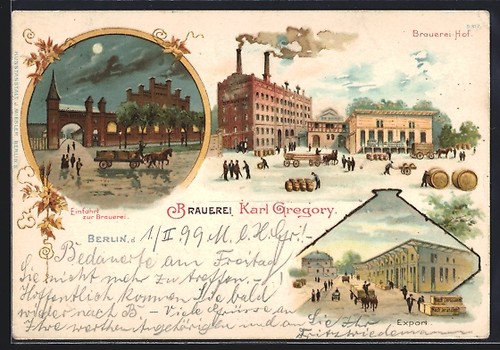 Brauerei-Hof.
Einfahrt
zur Brauerei.
BRAUEREI Karl Gregory.
BERLIN, d. 1/II 99 M. l. H. Gr.! –
Bedauerte am Freitag
Sie nicht mehr zu treffen. –
Hoffentlich kommen Sie bald
wieder nach B. – Viele Grüsse an
Ihre werthen Angehörigen und an Sie Ihr
Fritz Wiedemann
Export.